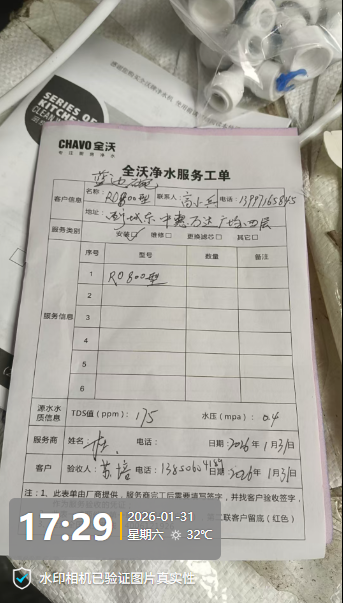 SERIES OF
KITCHEN
CLEAN
CHAVO全沃
全沃净水服务工单
客户信息
名称: RO800型 联系人: 电话: 13997165845
地址:
服务类别 安装☑ 维修□ 更换滤芯□ 其它□
服务信息
序号 型号 数量 备注
1 RO800型
2
3
4
5
6
源水水质信息 TDS值(ppm): 175 水压(mpa): 0.4
服务商 姓名: 电话: 日期: 2026年1月31日
客户 验收人: 电话: 日期: 2026年1月31日
注:1、此表单由厂商提供,服务商完工后需要填写签字,并找客户验收签字,
第二联客户留底(红色)
17:29
2026-01-31
星期六 32℃
水印相机已验证图片真实性